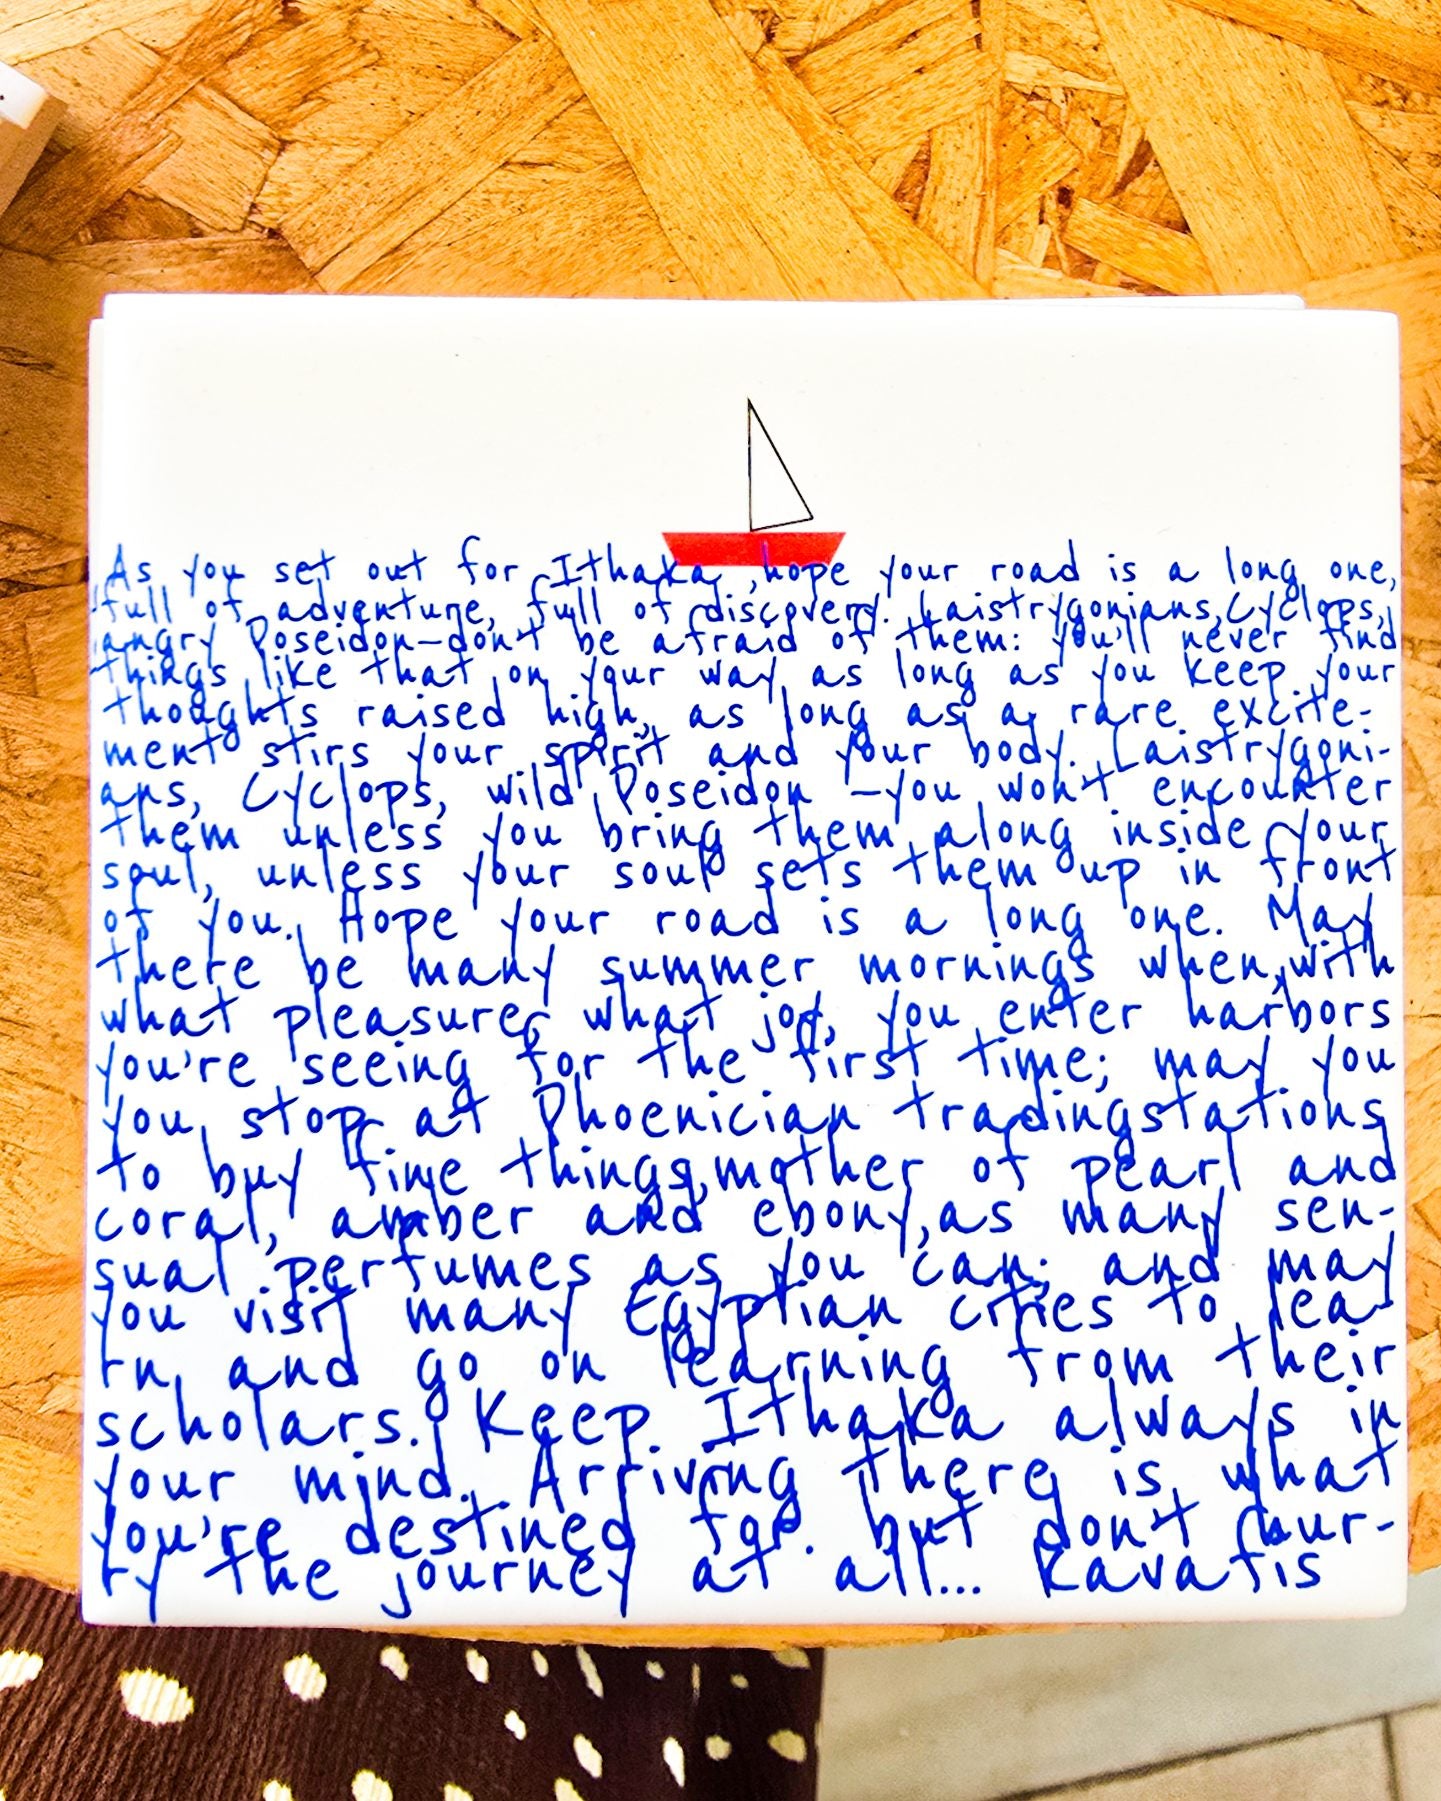 As you set out for Ithaka, hope your road is a long one,
full of adventure, full of discovery. Laistrygonians, Cyclops,
angry Poseidon—don't be afraid of them: you'll never find
things like that on your way as long as you keep your
thoughts raised high, as long as a rare excite-
ment stirs your spirit and your body. Laistrygoni-
ans, Cyclops, wild Poseidon —you won't encounter
them unless you bring them along inside your
soul, unless your soul sets them up in front
of you. Hope your road is a long one. May
there be many summer mornings when, with
what pleasure, what joy, you enter harbors
you're seeing for the first time; may you
you stop at Phoenician tradingstations
to buy fine things, mother of pearl and
coral, amber and ebony, as many sen-
sual perfumes as you can; and may
you visit many Egyptian cities to lea-
rn and go on learning from their
scholars. Keep Ithaka always in
your mind. Arriving there is what
you're destined for. but don't hur-
ry the journey at all... Kavafis